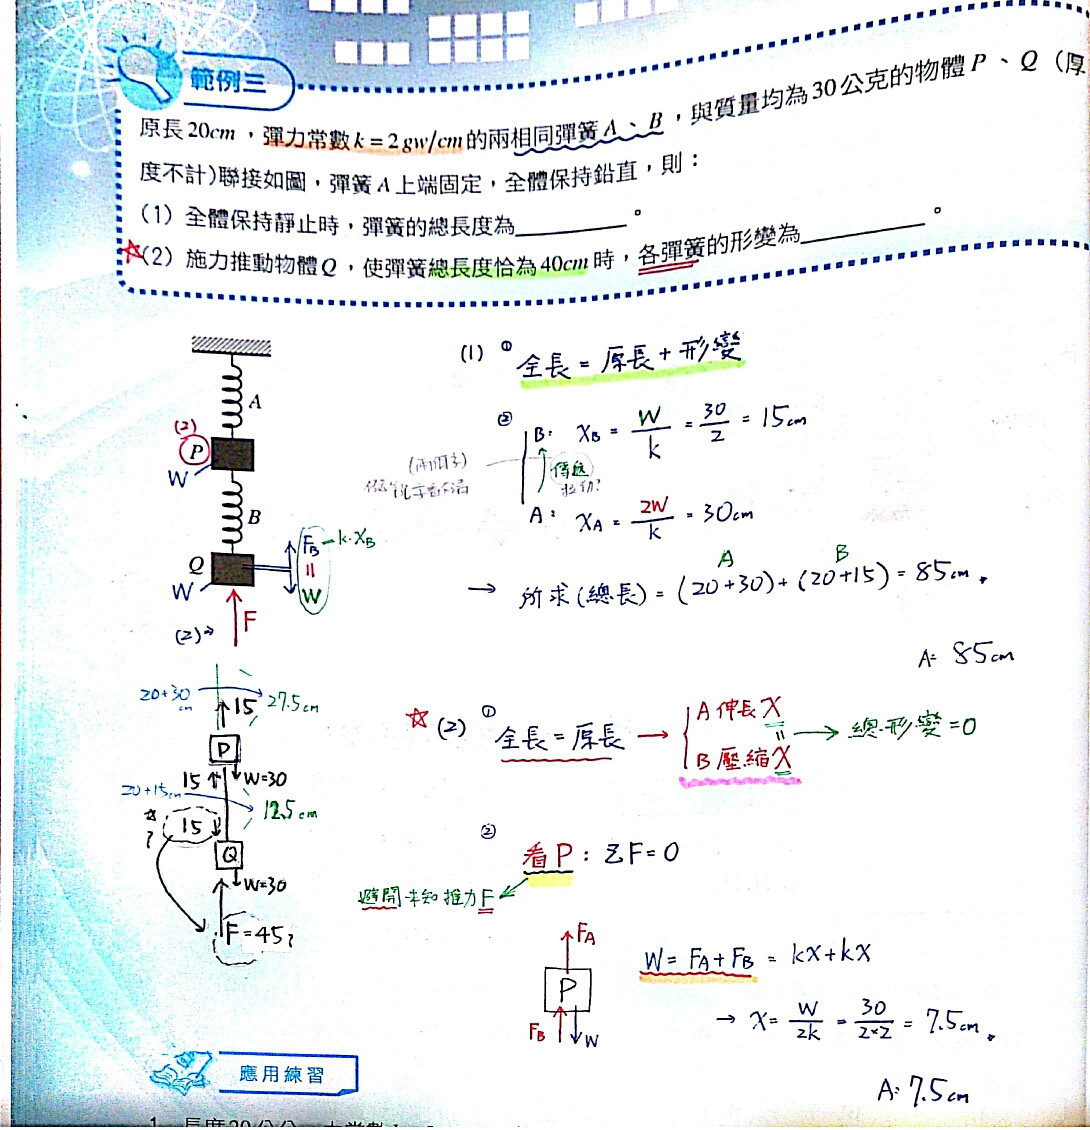 範例三
原長20cm，彈力常數k=2gw/cm的兩相同彈簧A、B，與質量均為30公克的物體P、Q（厚
度不計)聯接如圖，彈簧A上端固定，全體保持鉛直，則：
（1）全體保持靜止時，彈簧的總長度為＿＿＿＿。
☆（2）施力推動物體Q，使彈簧總長度恰為40cm時，各彈簧的形變為＿＿＿＿。
A
(2)
P
W
B
Q
W
F_B = k·X_B
=
W
F
(2)→
(1) ① 全長 = 原長 + 形變
② B: X_B = W/k = 30/2 = 15cm
(兩個字)
傳遞
拉動?
A: X_A = 2W/k = 30cm
A B
→ 所求(總長) = (20+30) + (20+15) = 85cm.
A: 85cm
20+30 cm
27.5cm
15
P
15 W=30
20+15cm
12.5cm
☆?
15
Q
W=30
F=45?
☆(2) ① 全長 = 原長 → A 伸長 X
=
B 壓縮 X
→ 總形變=0
② 看P: ΣF=0
避開未知推力F
F_A
P
F_B
W
W = F_A + F_B = kX + kX
→ X = W/2k = 30/2×2 = 7.5cm.
A: 7.5cm
應用練習